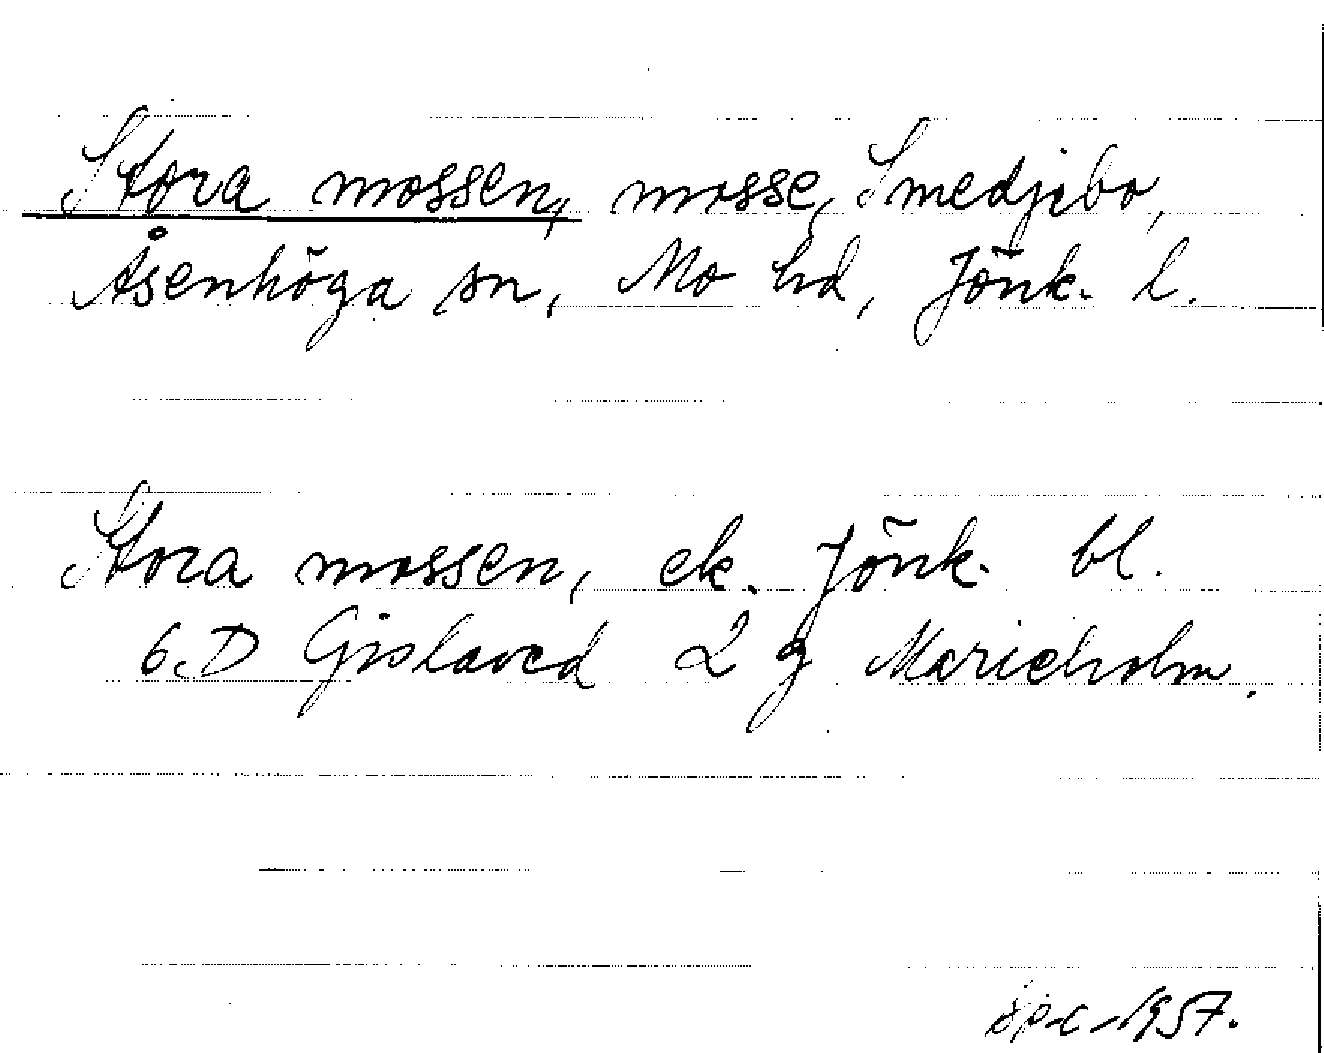 Stora mossen, mosse, Smedjebo,
Åsenhöga sn, Mo hd, Jönk. l.
Stora mossen, ek. Jönk. bl.
6D Gislaved 2 g Marieholm.
1957.